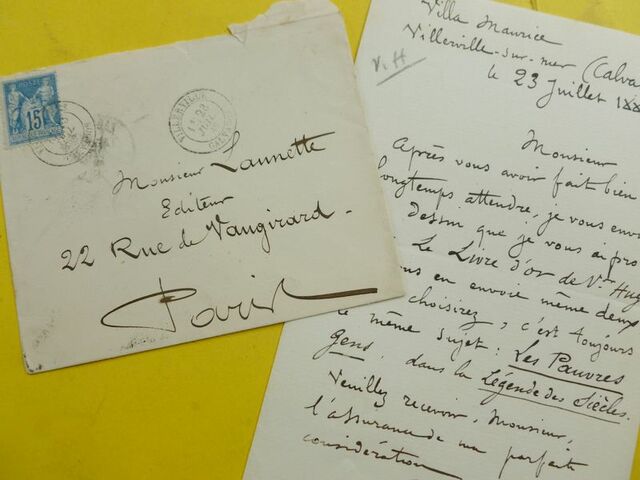 15
VILLERVILLE
Monsieur Lannette
Editeur
22 Rue de Vaugirard.
Paris
Villa Maurice
Villerville-sur-mer (Calva
le 23 Juillet
V. H
Monsieur
Après vous avoir fait bien
longtemps attendre, je vous env
dessin que je vous ai pro
Le Livre d'or de Vor Hug
us en envoie même deux
choisirez, c'est toujours
le même sujet: Les Pauvres
Gens, dans la Légende des Siècles.
Veuillez recevoir, Monsieur,
l'assurance de ma parfaite
considération